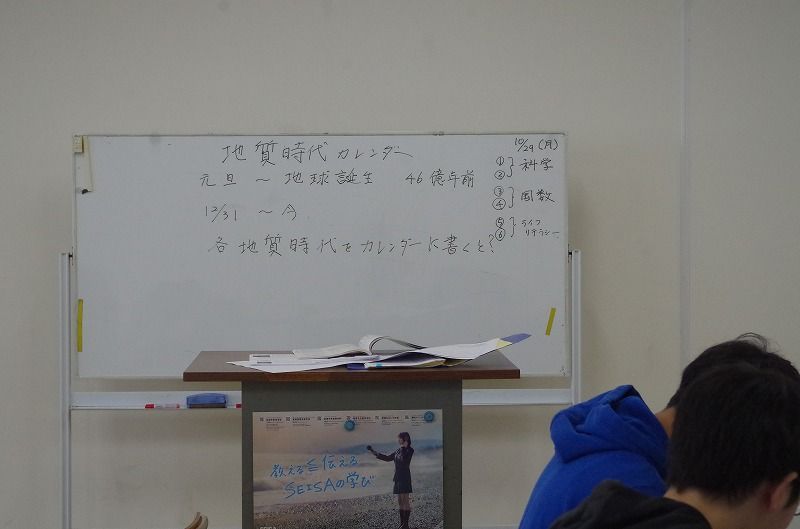 地質時代カレンダー
元旦 〜 地球誕生 46億年前
12/31 〜 今
各地質時代をカレンダーに書くと?
10/29 (月)
①
② } 科学
③
④ } 国数
⑤
⑥ } ライフ
リテラシー
教えるを伝える
SEISAの学び